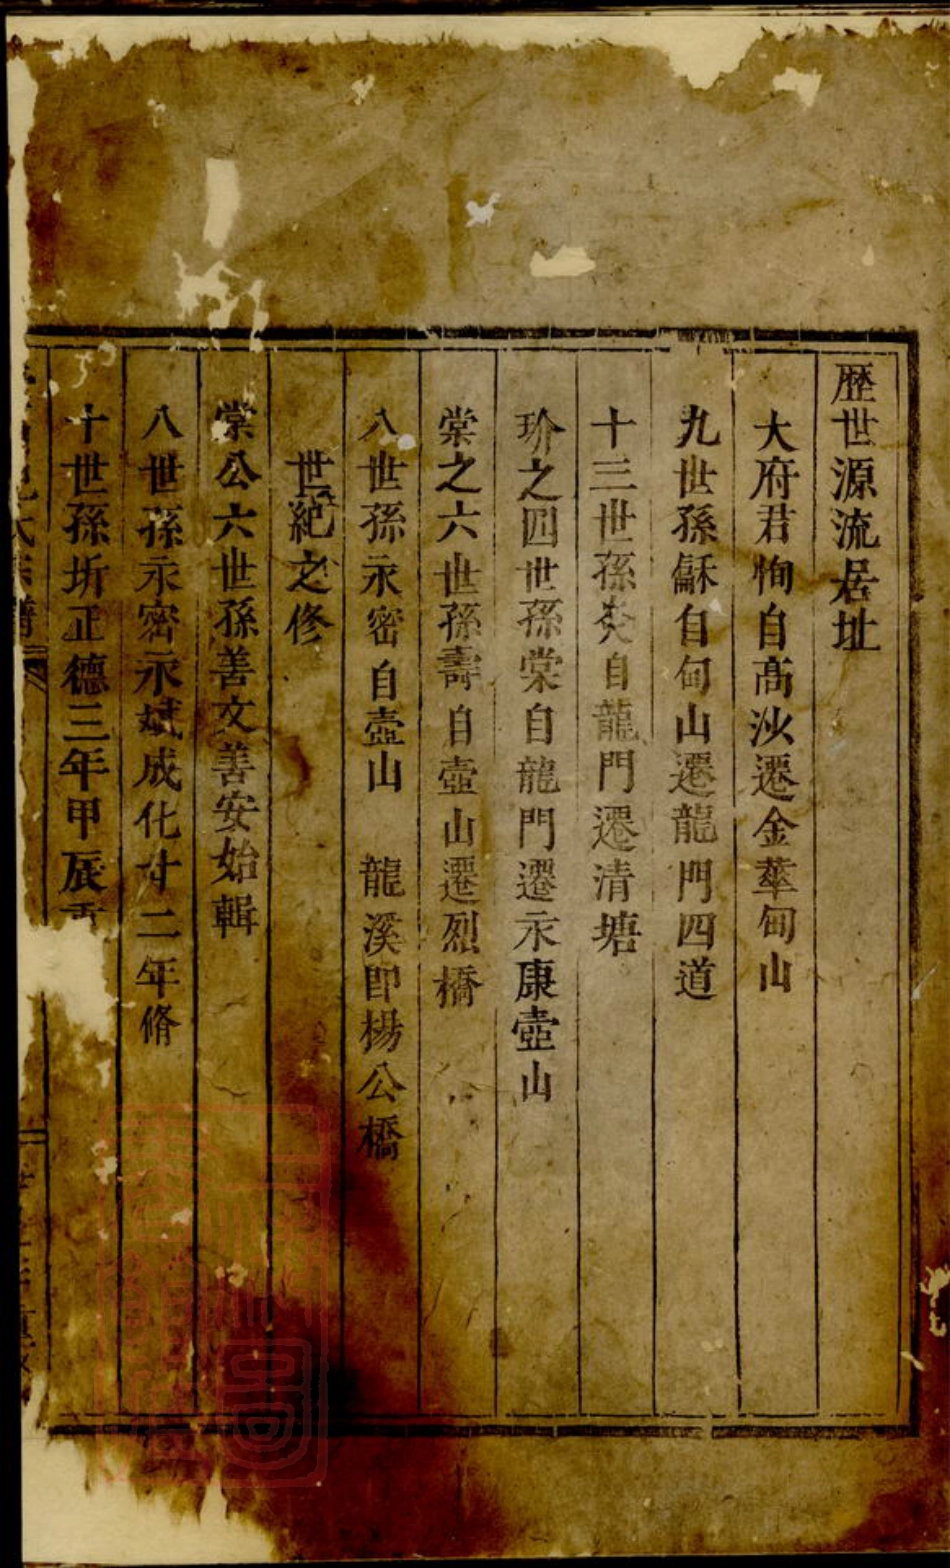 歴世源流居址
大府君恂自高沙遷金華甸山
九世孫龢自甸山遷龍門四道
十三世孫炎自龍門遷清塘
玠之四世孫棠自龍門遷永康壺山
棠之六世孫壽自壺山遷烈橋
八世孫永密自壺山　龍溪即楊公橋
世紀之修
棠公六世孫善文善安始輯
八世孫永密永斌成化廿二年脩
十世孫圻正德三年甲辰